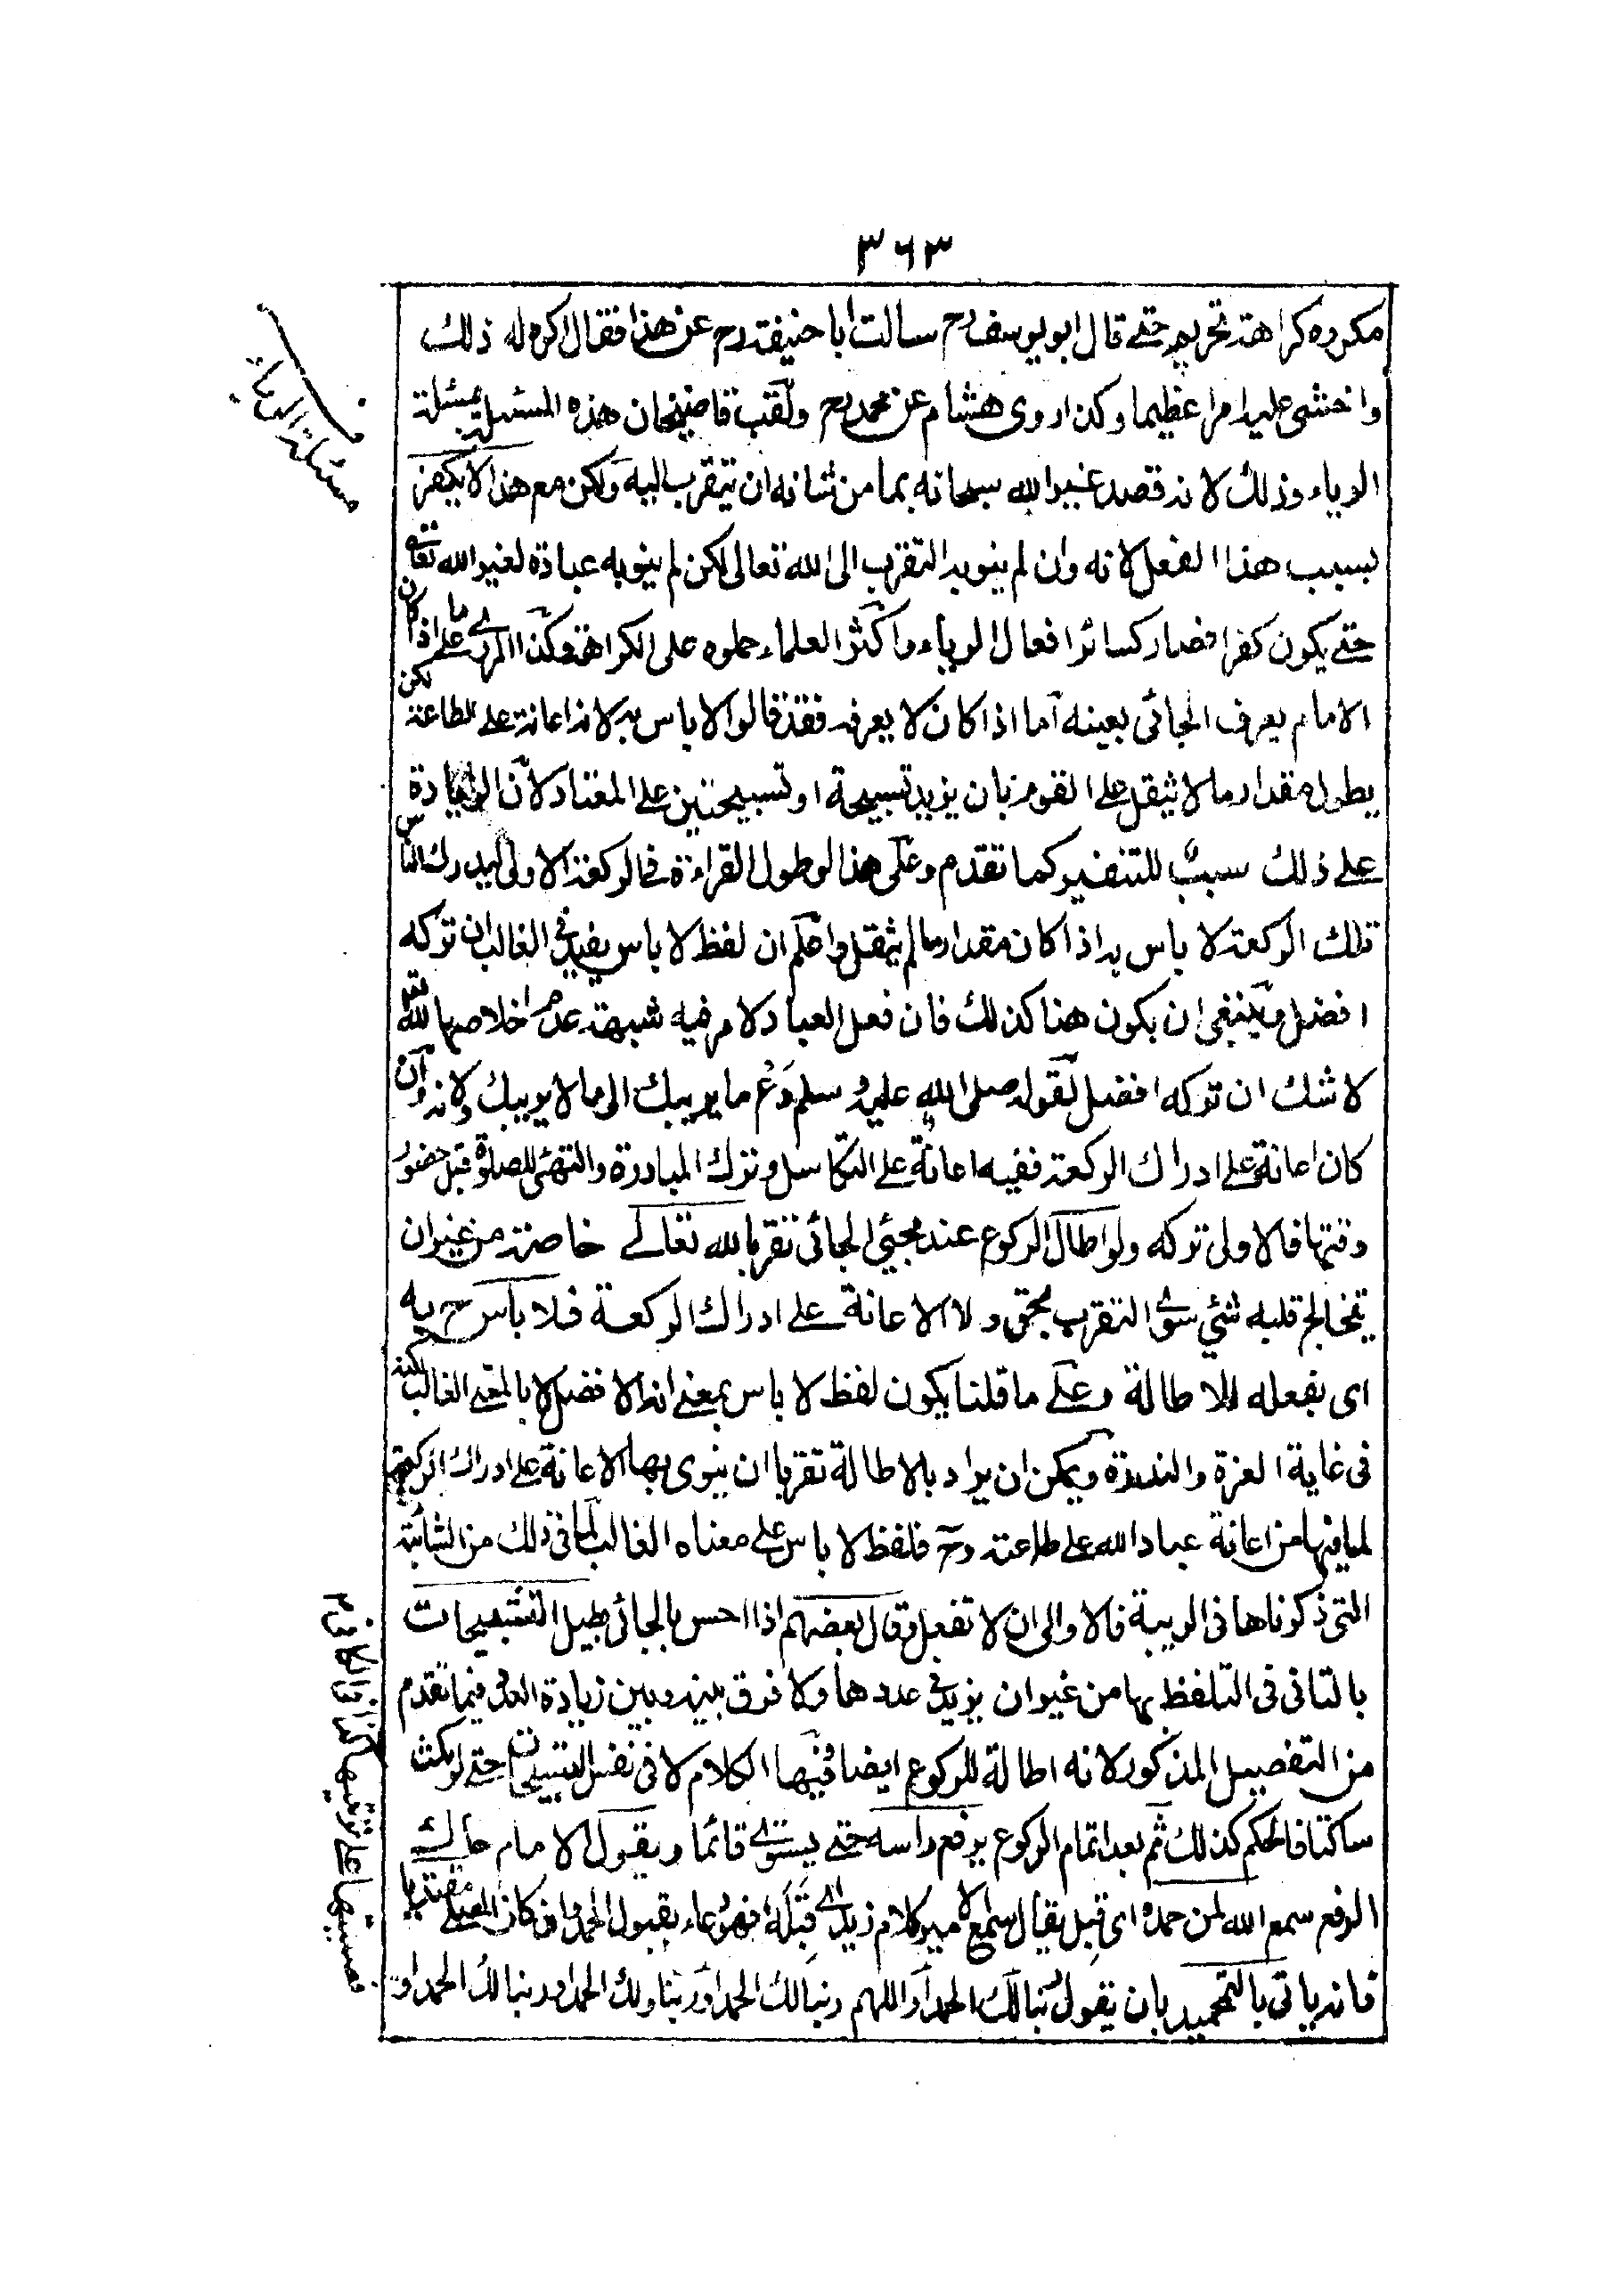 ٣٦٣
مكروه كراهة تحريم حتى قال ابو يوسف رح سالت ابا حنيفة رح عن هذا فقال اكره له ذلك
واخشى عليه امرا عظيما وكذا روى هشام عن محمد رح ولقب قاضيخان هذه المسئلة بمسئلة
الرياء وذلك لانه قصد غير الله سبحانه بما من شانه ان يتقرب اليه ولكن مع هذا لا يكفر
بسبب هذا الفعل لانه وان لم ينو به التقرب الى الله تعالى لكن لم ينو به عبادة لغير الله تعالى
حتى يكون كفرا فصار كسائر افعال الرياء واكثر العلماء حملوه على الكراهة وكذا المروى على ما اذا كان
الامام يعرف الجائى بعينه اما اذا كان لا يعرفه فقد قالوا لا باس به لانه اعانة على الطاعة لكن
يطول مقدار ما لا يثقل على القوم بان يزيد تسبيحة او تسبيحتين على المعتاد لان الزيادة
على ذلك سبب للتنفير كما تقدم وعلى هذا لو طول القراءة فى الركعة الاولى ليدرك الناس
تلك الركعة لا باس به اذا كان مقدار ما لم يثقل واعلم ان لفظ لا باس يفيد فى الغالب ان تركه
افضل وينبغى ان يكون هنا كذلك فان فعل العبادة لامر فيه شبهة عدم اخلاصها لله تعالى
لا شك ان تركه افضل لقوله صلى الله عليه وسلم دَعْ ما يريبك الى ما لا يريبك ولانه وان
كان اعانة على ادراك الركعة ففيه اعانة على التكاسل وترك المبادرة والتهيئ للصلوة قبل حضور
وقتها فالاولى تركه ولو اطال الركوع عند مجيئ الجائى تقربا لله تعالى خاصة من غير ان
يتخالج قلبه شئ سوى التقرب لمحق ولا الاعانة على ادراك الركعة فلا باس ح به
اى بفعله للاطالة وعلى ما قلنا يكون لفظ لا باس بمعنى انه الافضل لا بالمعنى الغالب لكنه
فى غاية العزة والندرة ويمكن ان يراد بالاطالة تقربا ان ينوى بها الاعانة على ادراك الركعة
لما فيها من اعانة عباد الله على طاعته وح فلفظ لا باس على معناه الغالب لما فى ذلك من الشائبة
التى ذكرناها فى الريبة فالاولى ان لا تفعل وقال بعضهم اذا احس بالجائى يطيل التسبيحات
بالتانى فى التلفظ بها من غير ان يزيد فى عددها ولا فرق بينه وبين زيادة العدد فيما تقدم
من التفصيل المذكور لانه اطالة للركوع ايضا وفيها الكلام لا فى نفس التسبيحات حتى لو مكث
ساكتا فالحكم كذلك ثم بعد اتمام الركوع يرفع راسه حتى يستوى قائما ويقول الامام حال
الرفع سمع الله لمن حمده اى قبل يقال سمع الامير كلام زيد اى قَبِلَه فهو دعاء بقبول الحمد وان كان المصلى مقتديا
فانه ياتى بالتحميد بان يقول ربنا لك الحمد او اللهم ربنا لك الحمد او ربنا ولك الحمد او ربنا لك الحمد او
مسئلة الرياء